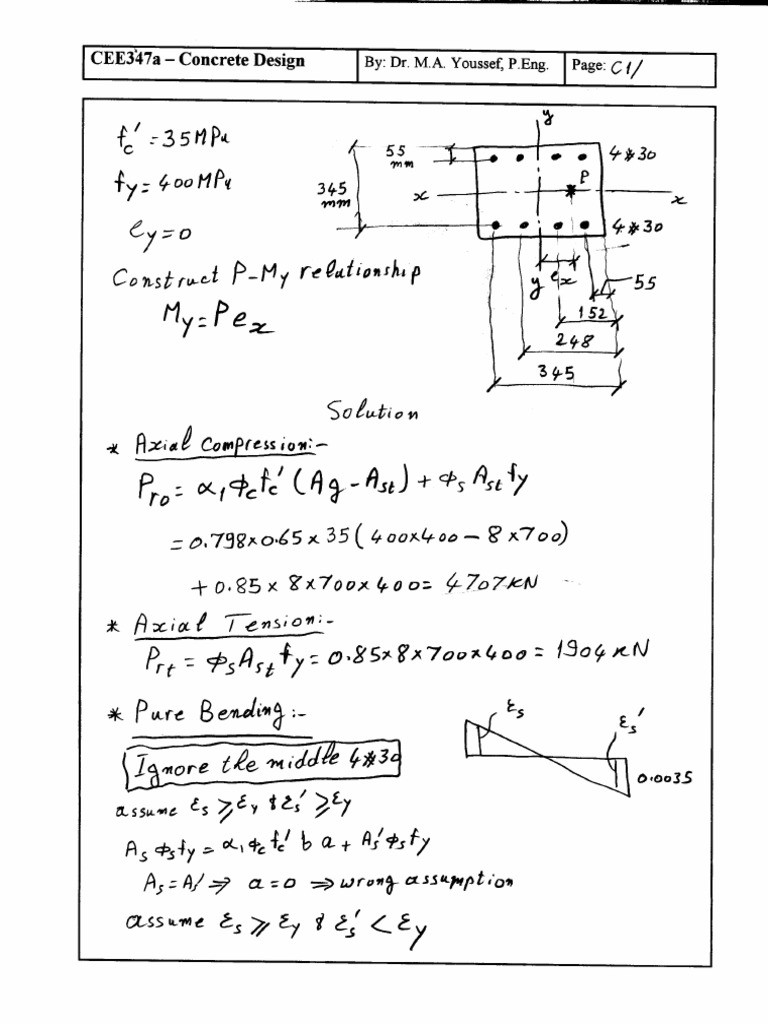 CEE347a – Concrete Design
By: Dr. M.A. Youssef, P.Eng.
Page: C1/
fc' = 35 MPa
fy = 400 MPa
ey = 0
Construct P-My relationship
My = Pex
y
55
mm
4#30
345
mm
x
P
x
4#30
y
ex
55
152
248
345
Solution
* Axial Compression:-
Pro = α1 ɸc fc' (Ag - Ast) + ɸs Ast fy
= 0.798x0.65x35(400x400 - 8x700)
+ 0.85x 8x700x400 = 4707KN
* Axial Tension:-
Prt = ɸs Ast fy = 0.85x8x700x400 = 1904 KN
* Pure Bending:-
Ignore the middle 4#30
εs
εs'
0.0035
assume εs ≥ εy & εs' ≥ εy
As ɸs fy = α1 ɸc fc' b a + As' ɸs fy
As = As' ⇒ a = 0 ⇒ wrong assumption
assume εs ≥ εy & εs' < εy